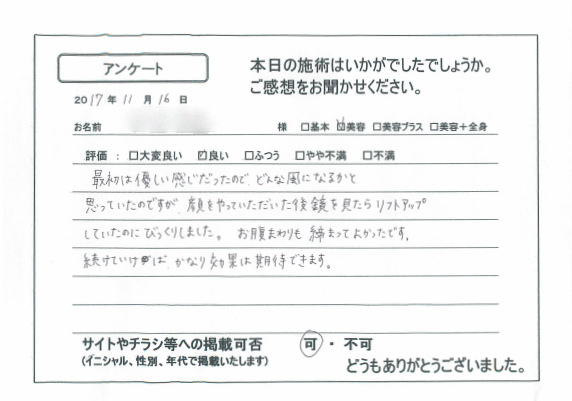 アンケート
本日の施術はいかがでしたでしょうか。
ご感想をお聞かせください。
2017年 11月 16日
お名前 様 □基本 ☑美容 □美容プラス □美容+全身
評価 : □大変良い ☑良い □ふつう □やや不満 □不満
最初は優しい感じだったので、どんな風になるかと
思っていたのですが、顔をやっていただいた後鏡を見たらリフトアップ
していたのにびっくりしました。 お腹まわりも締まってよかったです。
続けていけば、かなり効果は期待できます。
サイトやチラシ等への掲載可否 可 ・ 不可
(イニシャル、性別、年代で掲載いたします)
どうもありがとうございました。